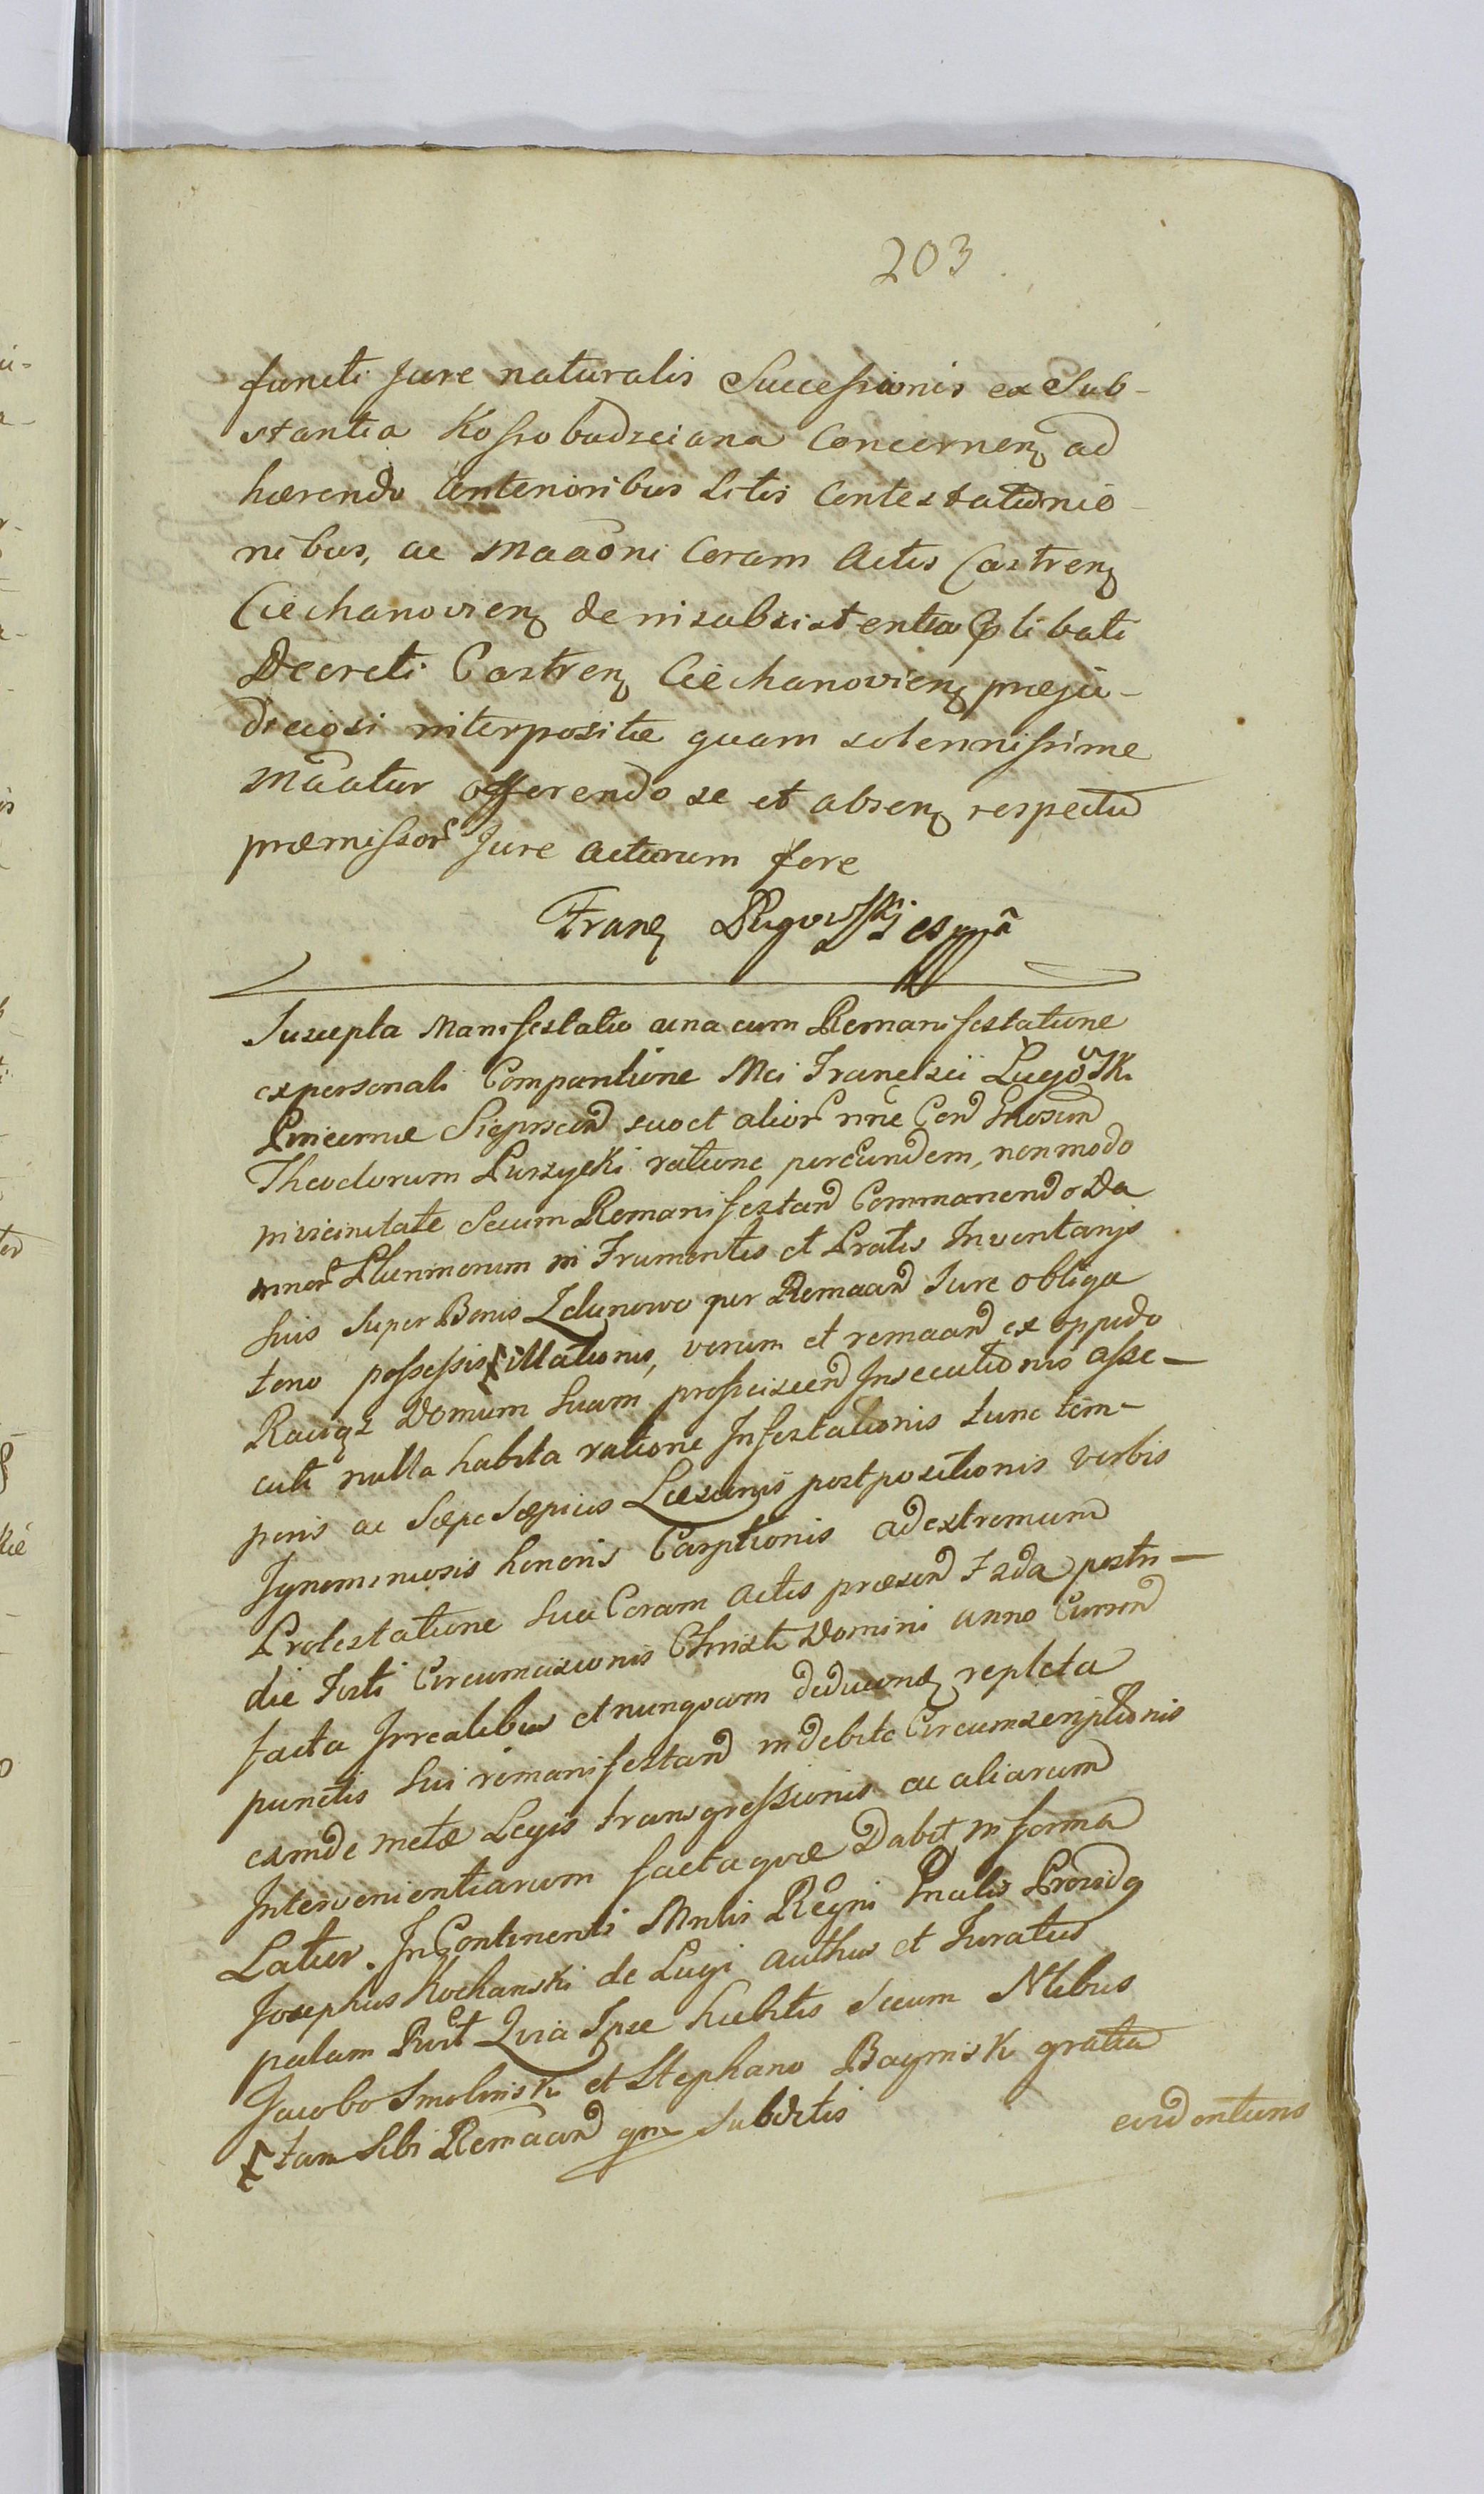 203
functi Jure naturalis Successionis ex Sub-
stantia Kossobudzciana Concernenz ad
hærendo Anterioribus Litis Contestationio-
nibus, ac Maãoni Coram Actis Castrenz
Ciechanovienz de insubsistentia plibati
Decreti Castrenz Ciechanovienz præju-
diciosi interpositæ quam solennissime
Mãatur offerendo se et absenz respectu
præmissor Jure acturum fore
Franz Lugowski
Suscepta Manifestatio una cum Remanifestatione
ex personali Comparitione Mci Francisci Lugowski
Pincernæ Sieprscen suo et alior nne Con Gnosum
Theodorum Purzycki ratione per eundem, non modo
in vicinitate Secum Remanifestan Commanendo Da
mnor Plurimorum in Frumentis et Pratis Inventarijs
suis super Bonis Zdunowo per Remaan Jure obliga
torio possessis illationis, verum et remaan ex oppido
Raciąż Domum suam proficiscen Insecutionis asse-
cuti nulla habita ratione Infestationis tunc tem-
poris ac Sæpe Sæpius Læsionis postpositionis verbis
Ignominiosis honoris Carptionis ad extremum
Protestatione sua Coram Actis præsen Fada postri-
die Festi Circumcisionis Christi Domini anno Curren
facta Irrealibus et nunquam deducenz repleta
punctis sui remanifestan indebite Circumscriptionis
exinde metæ Legis transgressionis ac aliarum
Intervenientiarum facta quæ Dabit in forma
Latior. In Continenti Mnlis Regni Gnalis Provid
Josephus Kochanski de Lugi authus et Juratus
palam Quia Ipse habitis secum Nlibus
Jacobo Smolinsk et Stephano Baginsk gratia
tam sibi Remaan qm subditis
evidentioris